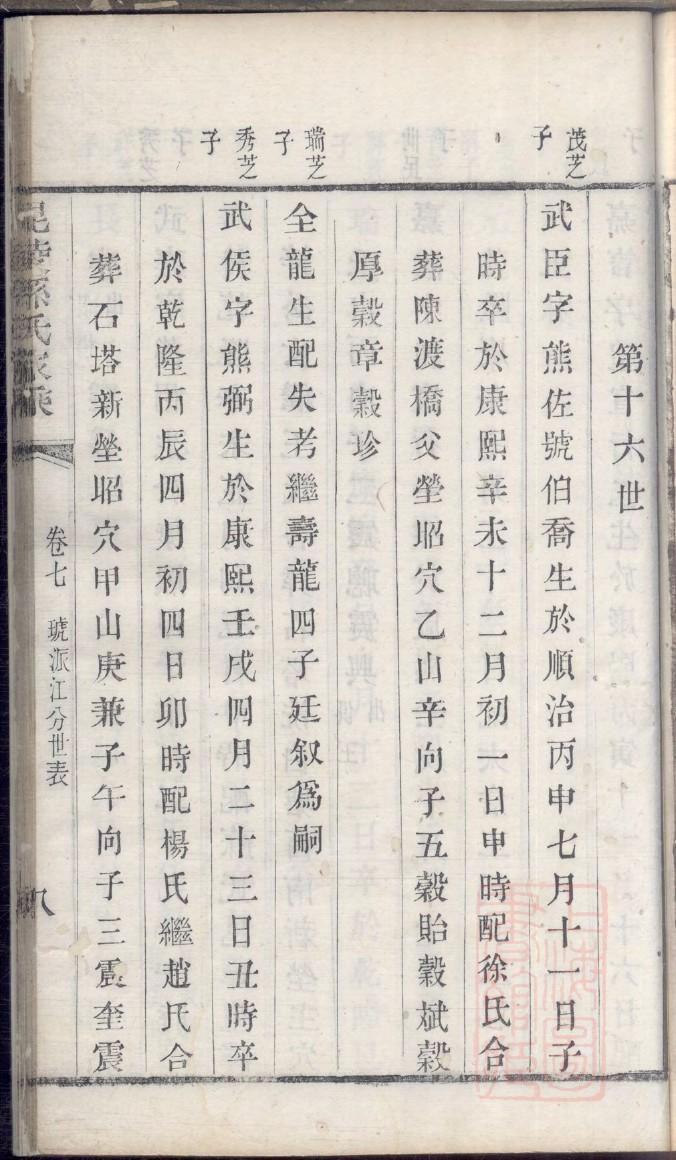 第十六世
茂芝子
武臣字熊佐號伯喬生於順治丙申七月十一日子
時卒於康熙辛未十二月初一日申時配徐氏合
葬陳渡橋父塋昭穴乙山辛向子五穀貽穀斌穀
厚穀章穀珍
瑞芝子
全龍生配失考繼壽龍四子廷叙爲嗣
秀芝子
武侯字熊弼生於康熙壬戌四月二十三日丑時卒
於乾隆丙辰四月初四日卯時配楊氏繼趙氏合
葬石塔新塋昭穴甲山庚兼子午向子三震奎震
毘陵孫氏家乘
卷七 琥派江分世表
八